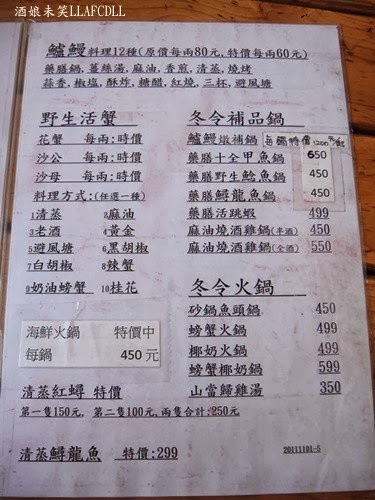 酒娘未笑LLAFCDLL
鱸鰻料理12種(原價每兩80元,特價每兩60元)
藥膳鍋,薑絲湯,麻油,香煎,清蒸,燒烤
蒜香,椒塩,酥炸,糖醋,紅燒,三杯,避風塘
野生活蟹
花蟹 每兩:時價
沙公 每兩:時價
沙母 每兩:時價
料理方式:(任選一種)
1清蒸 2麻油
3老酒 4黃金
5避風塘 6黑胡椒
7白胡椒 8辣蟹
9奶油螃蟹 10桂花
海鮮火鍋 特價中
每鍋 450元
清蒸紅蟳 特價
第一隻150元, 第二隻100元,兩隻合計:250元
清蒸鱘龍魚 特價:299
冬令補品鍋
鱸鰻燉補鍋 每鍋特價1200元
藥膳十全甲魚鍋 650
藥膳野生鯰魚鍋 450
藥膳鱘龍魚鍋 450
藥膳活跳蝦 499
麻油燒酒雞鍋(半酒) 450
麻油燒酒雞鍋(全酒) 550
冬令火鍋
砂鍋魚頭鍋 450
螃蟹火鍋 499
椰奶火鍋 499
螃蟹椰奶鍋 599
山當歸雞湯 350
20111101-5